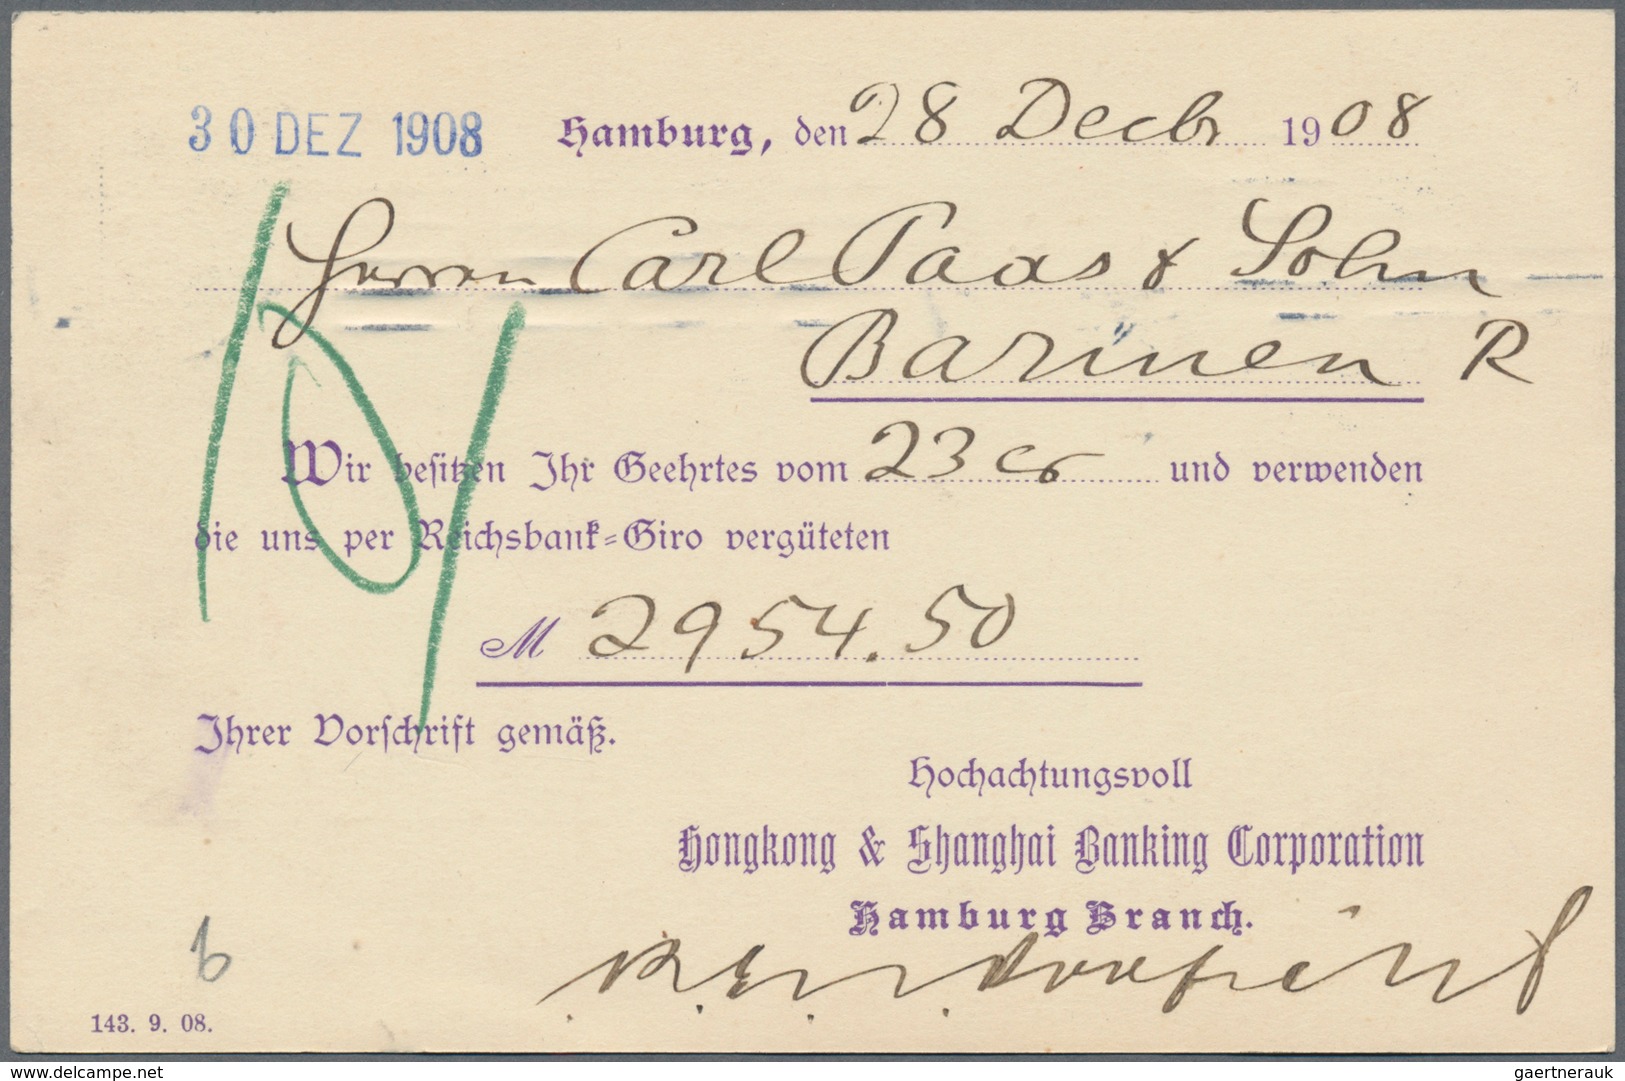 30 DEZ 1908
Hamburg, den 28 Decbr 1908
Herren Carl Paas & Sohn
Barmen R
Wir besitzen Ihr Geehrtes vom 23 cr und verwenden
die uns per Reichsbank-Giro vergüteten
M 2954.50
Ihrer Vorschrift gemäß.
Hochachtungsvoll
Hongkong & Shanghai Banking Corporation
Hamburg Branch.
143. 9. 08.
www.delcampe.net
gaertnerauk